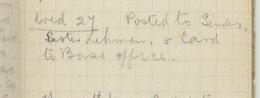 Wed 27 Posted to Sender,
Sister Lehman, & Card
to Base office.